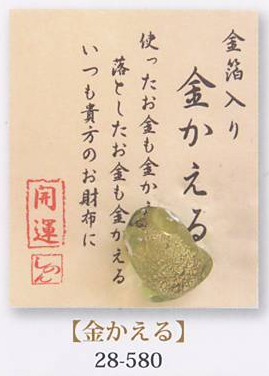 金箔入り
金かえる
使ったお金も金かえる
落としたお金も金かえる
いつも貴方のお財布に
開運
しのん
【金かえる】
28-580